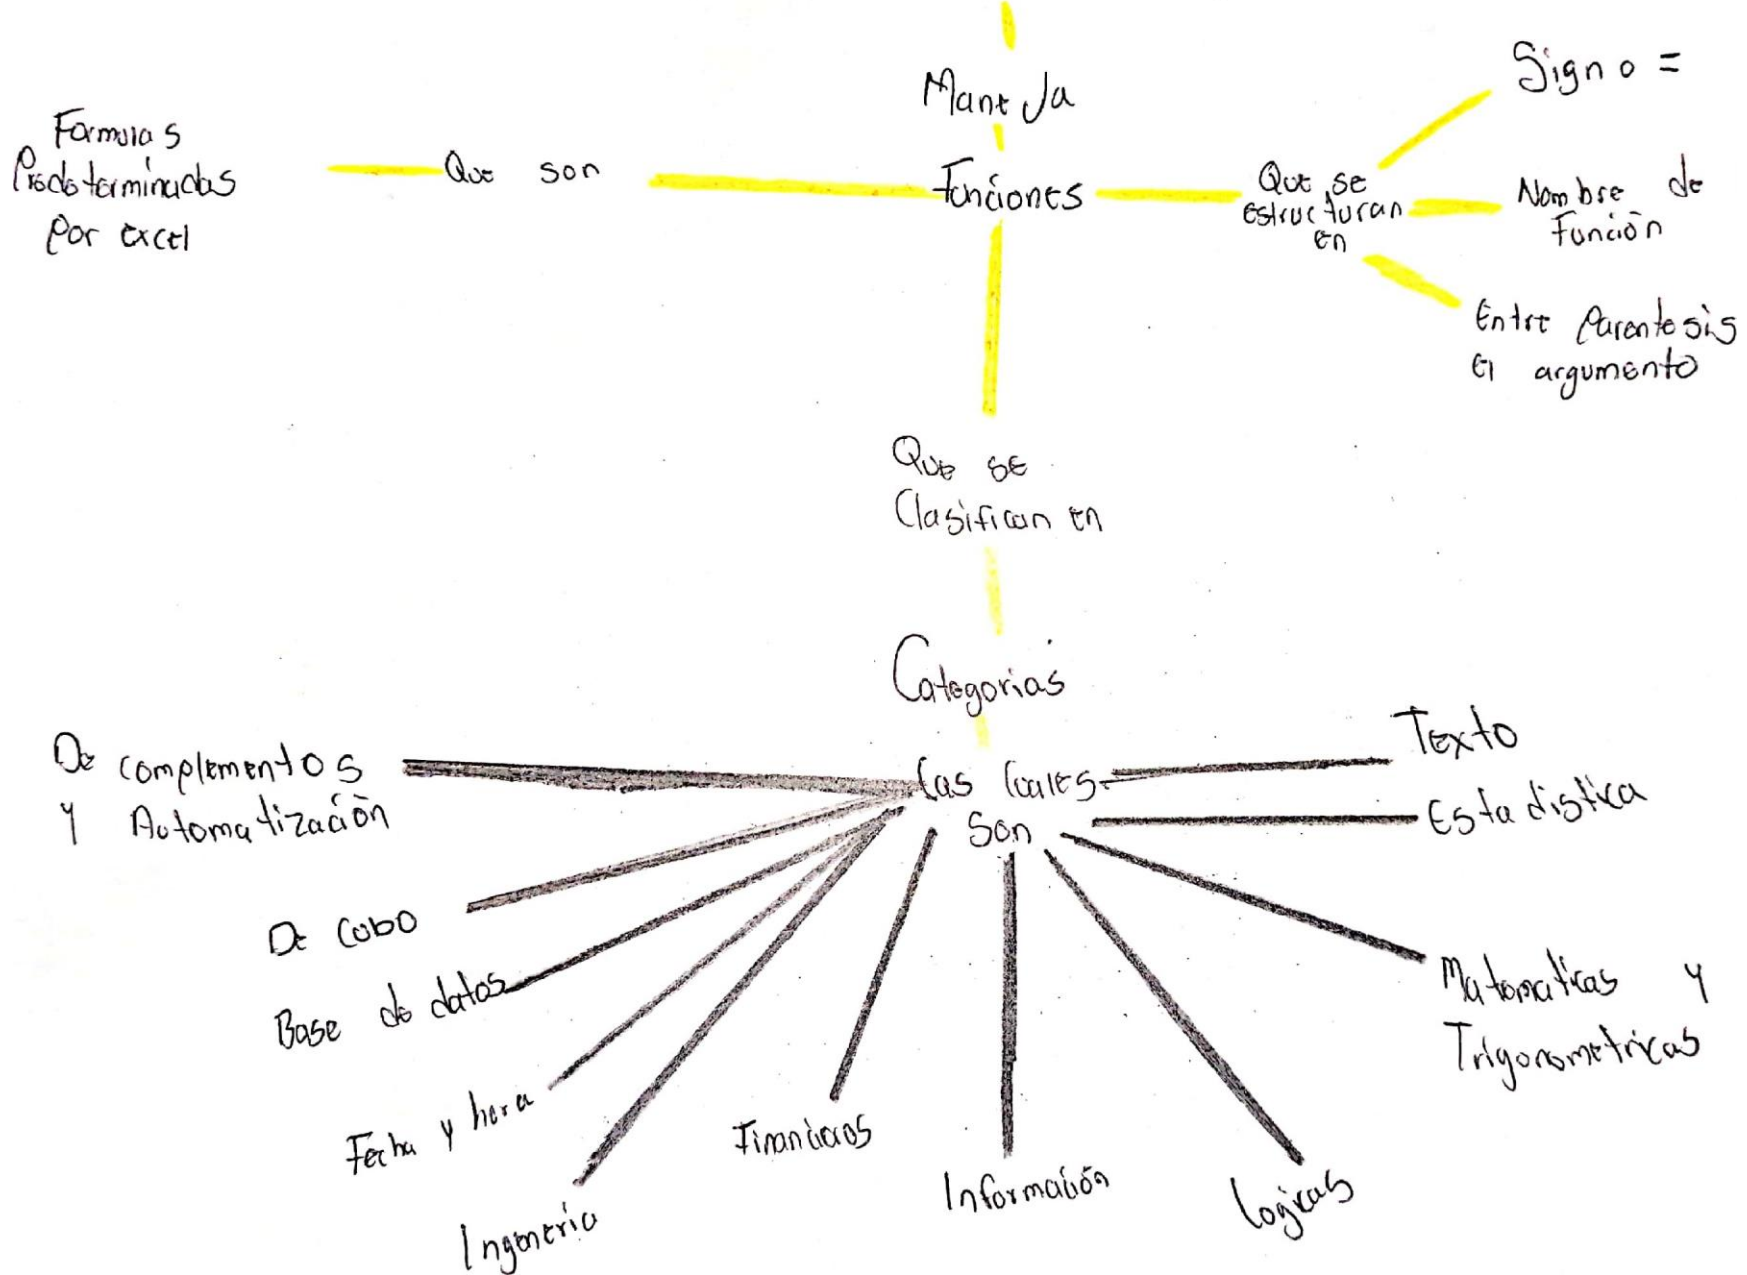 Maneja
Formulas
Predeterminadas
Por excel
Que son
Funciones
Que se
estructuran
en
Signo =
Nombre de
Función
Entre Parentesis
el argumento
Que se
Clasifican en
Categorias
Las Cuales
Son
De complementos
y Automatización
De cubo
Base de datos
Fecha y hora
Ingeneria
Financieros
Información
Logicas
Matematicas y
Trigonometricas
Estadistica
Texto